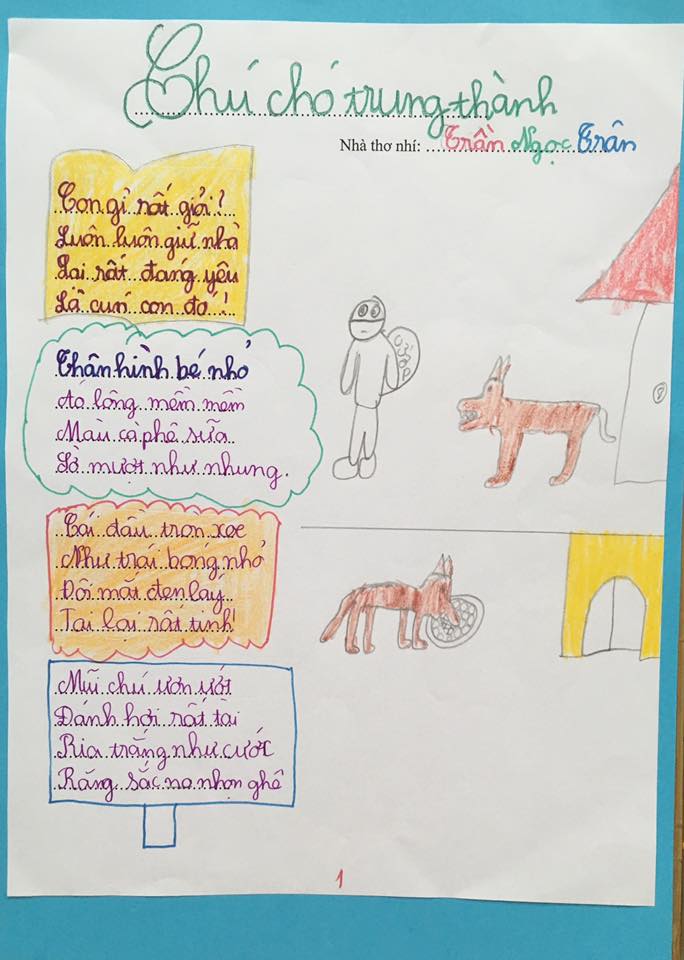 Chú chó trung thành
Nhà thơ nhí: Trần Ngọc Trân
Con gì rất giỏi?
Luôn luôn giữ nhà
Lại rất đáng yêu
Là cún con đó!
Thân hình bé nhỏ
Có lông mềm mềm
Màu cà phê sữa
Sờ mượt như nhung.
Cái đầu tròn xoe
Như trái bóng nhỏ
Đôi mắt đen láy
Tai lại rất tinh!
Mũi chú ươn ướt
Đánh hơi rất tài
Ria trắng như cước
Răng sắc na nhọn ghê
1